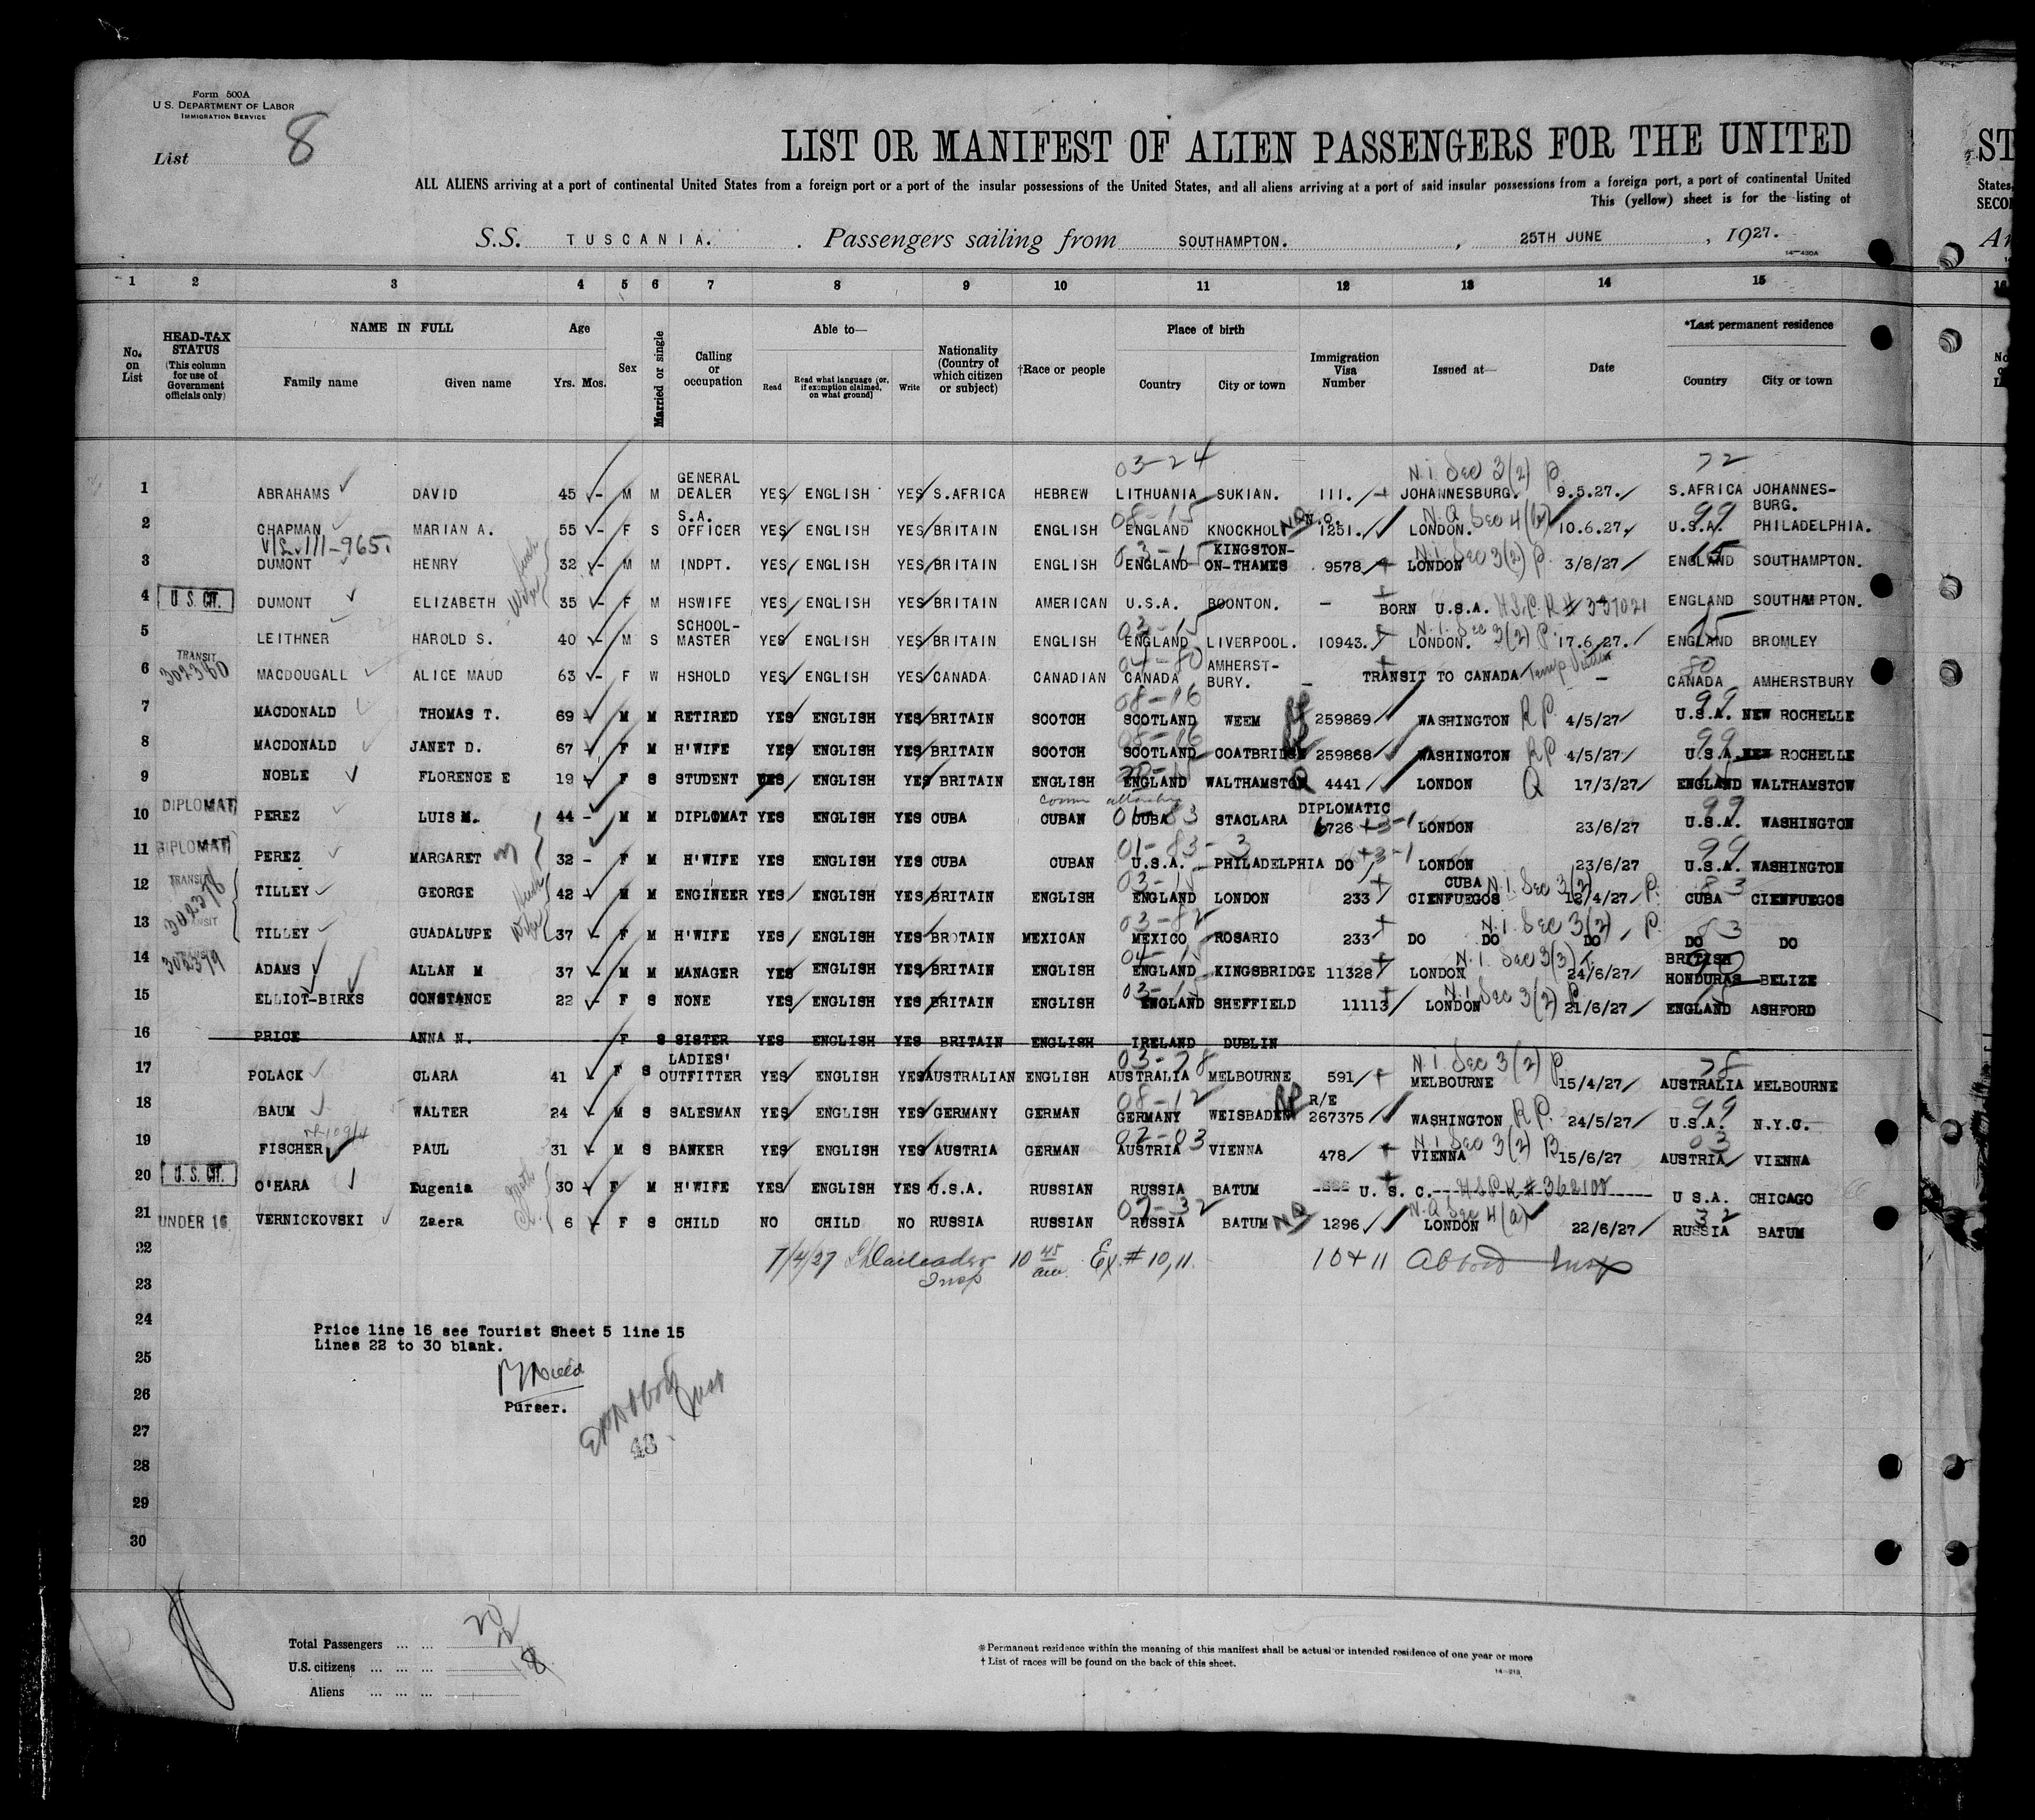 Form 500A
U.S. DEPARTMENT OF LABOR
IMMIGRATION SERVICE
List 8
LIST OR MANIFEST OF ALIEN PASSENGERS FOR THE UNITED
ST
ALL ALIENS arriving at a port of continental United States from a foreign port or a port of the insular possessions of the United States, and all aliens arriving at a port of said insular possessions from a foreign port, a port of continental United
States,
This (yellow) sheet is for the listing of
SECO
S.S. TUSCANIA. Passengers sailing from SOUTHAMPTON. , 25TH JUNE , 1927.
14-430A
1 2 3 4 5 6 7 8 9 10 11 12 13 14 15
No. on List
HEAD-TAX STATUS (This column for use of Government officials only)
NAME IN FULL Family name Given name
Age Yrs. Mos.
Sex
Married or single
Calling or occupation
Able to— Read Read what language (or, if exemption claimed, on what ground) Write
Nationality (Country of which citizen or subject)
†Race or people
Place of birth Country City or town
Immigration Visa Number
Issued at—
Date
*Last permanent residence Country City or town
03-24 N.I. Sec 3(2) P. 72
1 ABRAHAMS DAVID 45 - M M GENERAL DEALER YES ENGLISH YES S.AFRICA HEBREW LITHUANIA SUKIAN. 111. JOHANNESBURG. 9.5.27. S.AFRICA JOHANNES-BURG.
08-15 N.Q. N.Q Sec 4(b) 99
2 CHAPMAN MARIAN A. 55 - F S S.A. OFFICER YES ENGLISH YES BRITAIN ENGLISH ENGLAND KNOCKHOLT 1251. LONDON. 10.6.27. U.S.A. PHILADELPHIA.
03-15 N.I. Sec 3(2) P. 15
3 DUMONT HENRY 32 - M M INDPT. YES ENGLISH YES BRITAIN ENGLISH ENGLAND KINGSTON-ON-THAMES 9578 LONDON 3/8/27 ENGLAND SOUTHAMPTON.
4 U.S. CIT. DUMONT ELIZABETH 35 - F M HSWIFE YES ENGLISH YES BRITAIN AMERICAN U.S.A. BOONTON. - BORN U.S.A. ENGLAND SOUTHAMPTON.
03-15 N.I. Sec 3(2) P. 15
5 LEITHNER HAROLD S. 40 - M S SCHOOL-MASTER YES ENGLISH YES BRITAIN ENGLISH ENGLAND LIVERPOOL. 10943. LONDON. 17.6.27. ENGLAND BROMLEY
TRANSIT 302380 04-80 80
6 MACDOUGALL ALICE MAUD 63 - F W HSHOLD YES ENGLISH YES CANADA CANADIAN CANADA AMHERST-BURY. - TRANSIT TO CANADA - CANADA AMHERSTBURY
08-86 99
7 MACDONALD THOMAS T. 69 M M RETIRED YES ENGLISH YES BRITAIN SCOTCH SCOTLAND WEEM 259869 WASHINGTON RP. 4/5/27 U.S.A. NEW ROCHELLE
08-86 99
8 MACDONALD JANET D. 67 F M H'WIFE YES ENGLISH YES BRITAIN SCOTCH SCOTLAND COATBRIDGE 259868 WASHINGTON RP 4/5/27 U.S.A. NEW ROCHELLE
9 NOBLE FLORENCE E 19 F S STUDENT YES ENGLISH YES BRITAIN ENGLISH ENGLAND WALTHAMSTOW 4441 LONDON Q 17/3/27 ENGLAND WALTHAMSTOW
99
10 DIPLOMAT PEREZ LUIS M. 44 - M M DIPLOMAT YES ENGLISH YES CUBA CUBAN CUBA STACLARA DIPLOMATIC 6726 +3-1 LONDON 23/6/27 U.S.A. WASHINGTON
01-83-3 99
11 DIPLOMAT PEREZ MARGARET 32 - F M H'WIFE YES ENGLISH YES CUBA CUBAN U.S.A. PHILADELPHIA DO +3-1 LONDON 23/6/27 U.S.A. WASHINGTON
TRANSIT 03-15 N.I. Sec 3(2) P. 83
12 TILLEY GEORGE 42 M M ENGINEER YES ENGLISH YES BRITAIN ENGLISH ENGLAND LONDON 233 CUBA CIENFUEGOS 12/4/27 CUBA CIENFUEGOS
03-82 N.I. Sec 3(2) P. 83
13 TILLEY GUADALUPE 37 F M H'WIFE YES ENGLISH YES BROTAIN MEXICAN MEXICO ROSARIO 233 DO DO DO DO DO
302379 N.I. Sec 3(3) T.
14 ADAMS ALLAN M 37 M M MANAGER YES ENGLISH YES BRITAIN ENGLISH ENGLAND KINGSBRIDGE 11328 LONDON 24/6/27 BRITISH HONDURAS BELIZE
03-15 N.I. Sec 3(2) P.
15 ELLIOT-BIRKS CONSTANCE 22 F S NONE YES ENGLISH YES BRITAIN ENGLISH ENGLAND SHEFFIELD 11113 LONDON 21/6/27 ENGLAND ASHFORD
16 PRICE ANNA N. F S SISTER YES ENGLISH YES BRITAIN ENGLISH IRELAND DUBLIN
03-78 N.I. Sec 3(2) P. 78
17 POLACK CLARA 41 F S LADIES' OUTFITTER YES ENGLISH YES AUSTRALIAN ENGLISH AUSTRALIA MELBOURNE 591 MELBOURNE 15/4/27 AUSTRALIA MELBOURNE
08-12 RP R/E 99
18 BAUM WALTER 24 M S SALESMAN YES ENGLISH YES GERMANY GERMAN GERMANY WEISBADEN 267375 WASHINGTON RP. 24/5/27 U.S.A. N.Y.C.
02-03 N.I. Sec 3(2) B 03
19 FISCHER PAUL 31 M S BANKER YES ENGLISH YES AUSTRIA GERMAN AUSTRIA VIENNA 478 VIENNA 15/6/27 AUSTRIA VIENNA
20 U.S. CIT. O'HARA Eugenia 30 F M H'WIFE YES ENGLISH YES U.S.A. RUSSIAN RUSSIA BATUM U. S. C. U S.A. CHICAGO
N.Q Sec 4(a) 32
21 UNDER 16 VERNICKOVSKI Zaera 6 F S CHILD NO CHILD NO RUSSIA RUSSIAN RUSSIA BATUM NQ 1296 LONDON 22/6/27 RUSSIA BATUM
22 7/4/27 10 45 am. Ex. # 10, 11. 10 + 11 Insp
23 Insp
24
Price line 16 see Tourist Sheet 5 line 15
25 Lines 22 to 30 blank.
26 Purser.
27
48
28
29
30
Total Passengers ... ... 20
U.S. citizens ... ... ... 2
Aliens ... ... ... 18
*Permanent residence within the meaning of this manifest shall be actual or intended residence of one year or more
† List of races will be found on the back of this sheet.